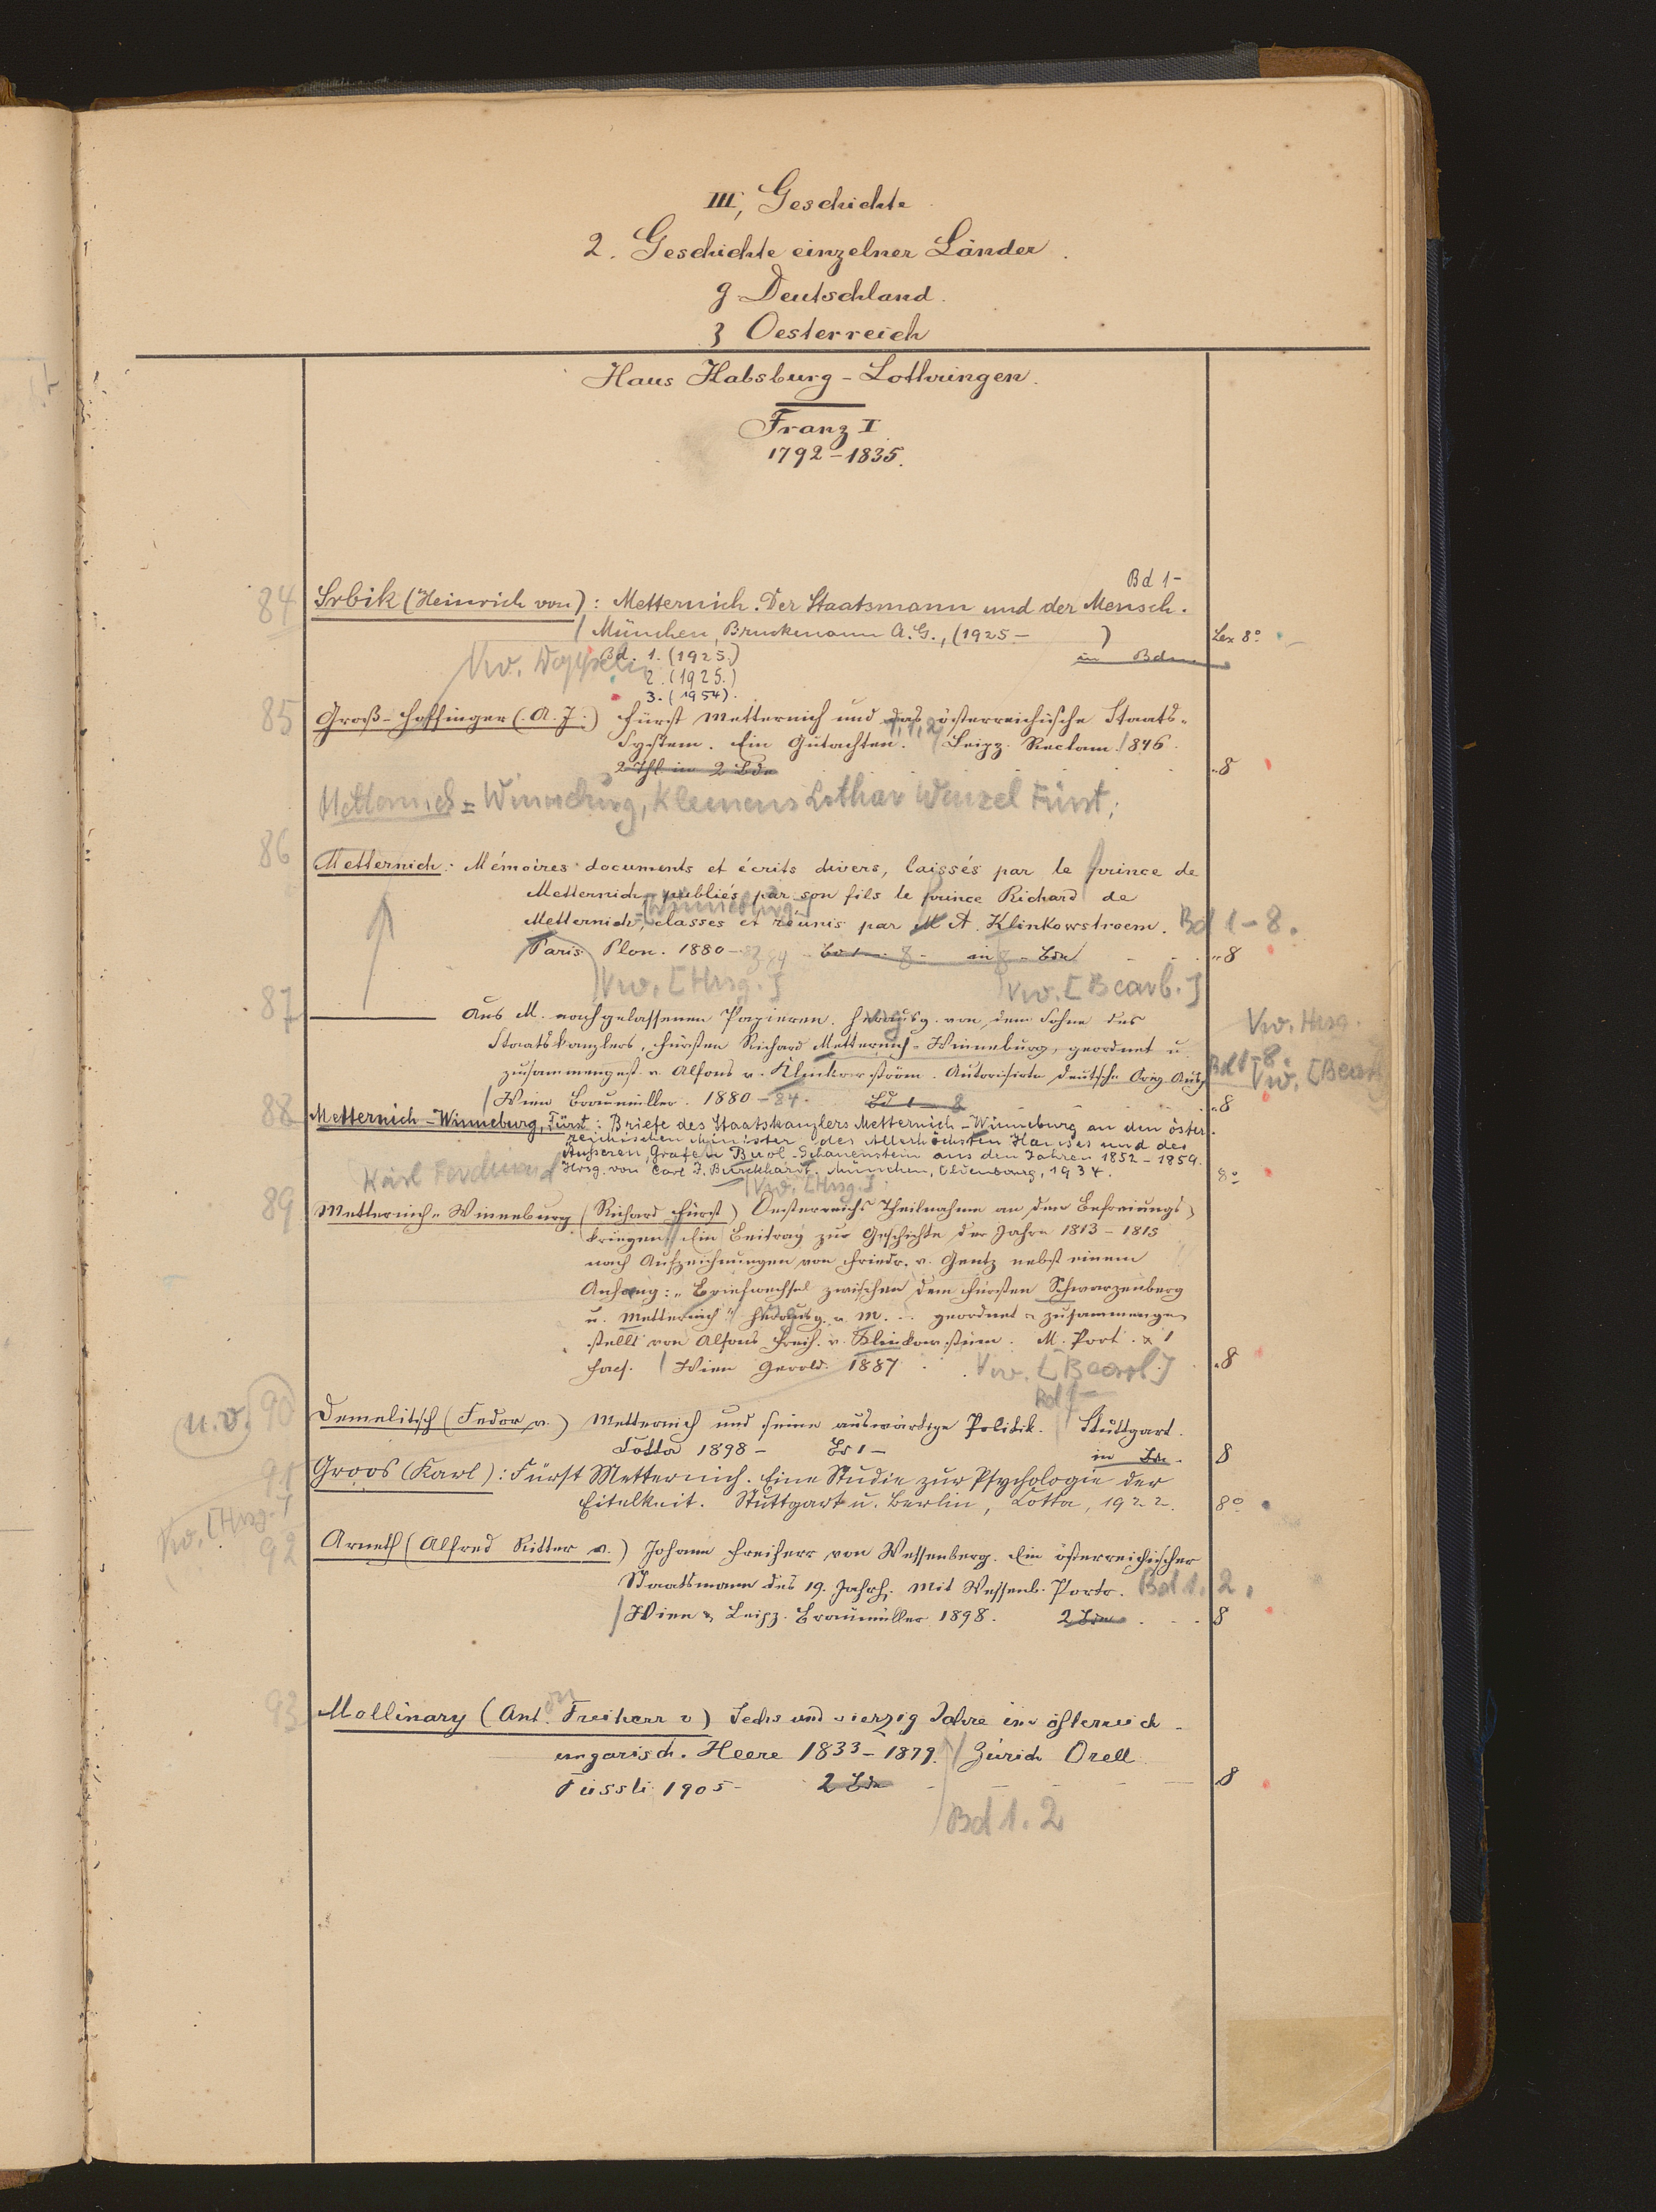 III, Geschichte
2. Geschichte einzelner Länder.
g Deutschland.
3 Oesterreich
Haus Habsburg-Lothringen.
Franz I.
1792-1835.
Bd 1-
84 Srbik (Heinrich von): Metternich. Der Staatsmann und der Mensch.
/ München, Bruckmann A.G., (1925- ) Lex 8°
Bd. 1. (1925.) in Bdn.
Vw.
2. (1925.)
3. (1954).
85 Groß-Hoffinger (A. J.) Fürst Metternich und das österreichische Staats-
System. Ein Gutachten. T. 1, 2 / Leipz. Reclam. 1846.
2 Thl in 2 Bdn 8
Metternich=Winneburg, Klemens Lothar Wenzel Fürst;
86 Metternich: Mémoires documents et écrits divers, laissés par le prince de
Metternich, publiés par son fils le prince Richard de
[Winneburg-]
Metternich, classés et réunis par M A. Klinkowstroem. Bd 1-8.
Paris. Plon. 1880-84 Bd 1- 8 - in 8 Bdn 8
Vw. [Hrsg.] Vw. [Bearb.]
87 ——— Aus M. nachgelassenen Papieren. Herausg. von dem Sohne des Vw. Hrsg.
Staatskanzlers, Fürsten Richard Metternich-Winneburg, geordnet u.
zusammengest. v. Alfons v. Klinkowström. Autorisirte deutsche Orig. Ausg. Bd 1-8. Vw. [Bearb
/ Wien Braumüller. 1880-84. Bd 1-8 8
88 Metternich-Winneburg, Fürst: Briefe des Staatskanzlers Metternich-Winneburg an den öster-
reichischen Minister des Allerhöchsten Hauses und des
Äusseren, Grafen Buol-Schauenstein aus den Jahren 1852-1859.
Karl Ferdinand Hrsg. von Carl J. Burckhardt. München, Oldenbourg, 1934. 8°
/ Vw. [Hrsg.]
89 Metternich-Winneburg (Richard Fürst) Oesterreichs Theilnahme an den Befreiungs-
kriegen. Ein Beitrag zur Geschichte der Jahre 1813-1815
nach Aufzeichnungen von Friedr. v. Gentz nebst einem
Anhang: "Briefwechsel zwischen dem Fürsten Schwarzenberg
u. Metternich" Herausg. v. M. .. geordnet u zusammenge
stellt von Alfons Freih. v. Klinkowström. M. Port. & 1
Facs. / Wien Gerold. 1887 Vw. [Bearb.] 8
Bd 1-
u.v. 90 Demelitsch (Fedor v.) Metternich und seine auswärtige Politik. / Stuttgart.
Cotta 1898- Bd 1- in Bdn. 8
91 Groos (Karl): Fürst Metternich. Eine Studie zur Psychologie der
Eitelkeit. Stuttgart u. Berlin, Cotta, 1922. 8°
Vw. [Hrsg.]
92 Arneth (Alfred Ritter v.) Johann Freiherr von Wessenberg. Ein österreichischer
Staatsmann des 19. Jahrh. Mit Wessenb. Portr. Bd 1. 2.
/ Wien & Leipz. Braumüller 1898. 2 Bde 8
93 Mollinary (Ant. on Freiherr v) Sechs und vierzig Jahre im österreich-
ungarisch. Heere 1833-1879. / Zürich Orell
Füssli 1905- 2 Bde 8
Bd 1. 2